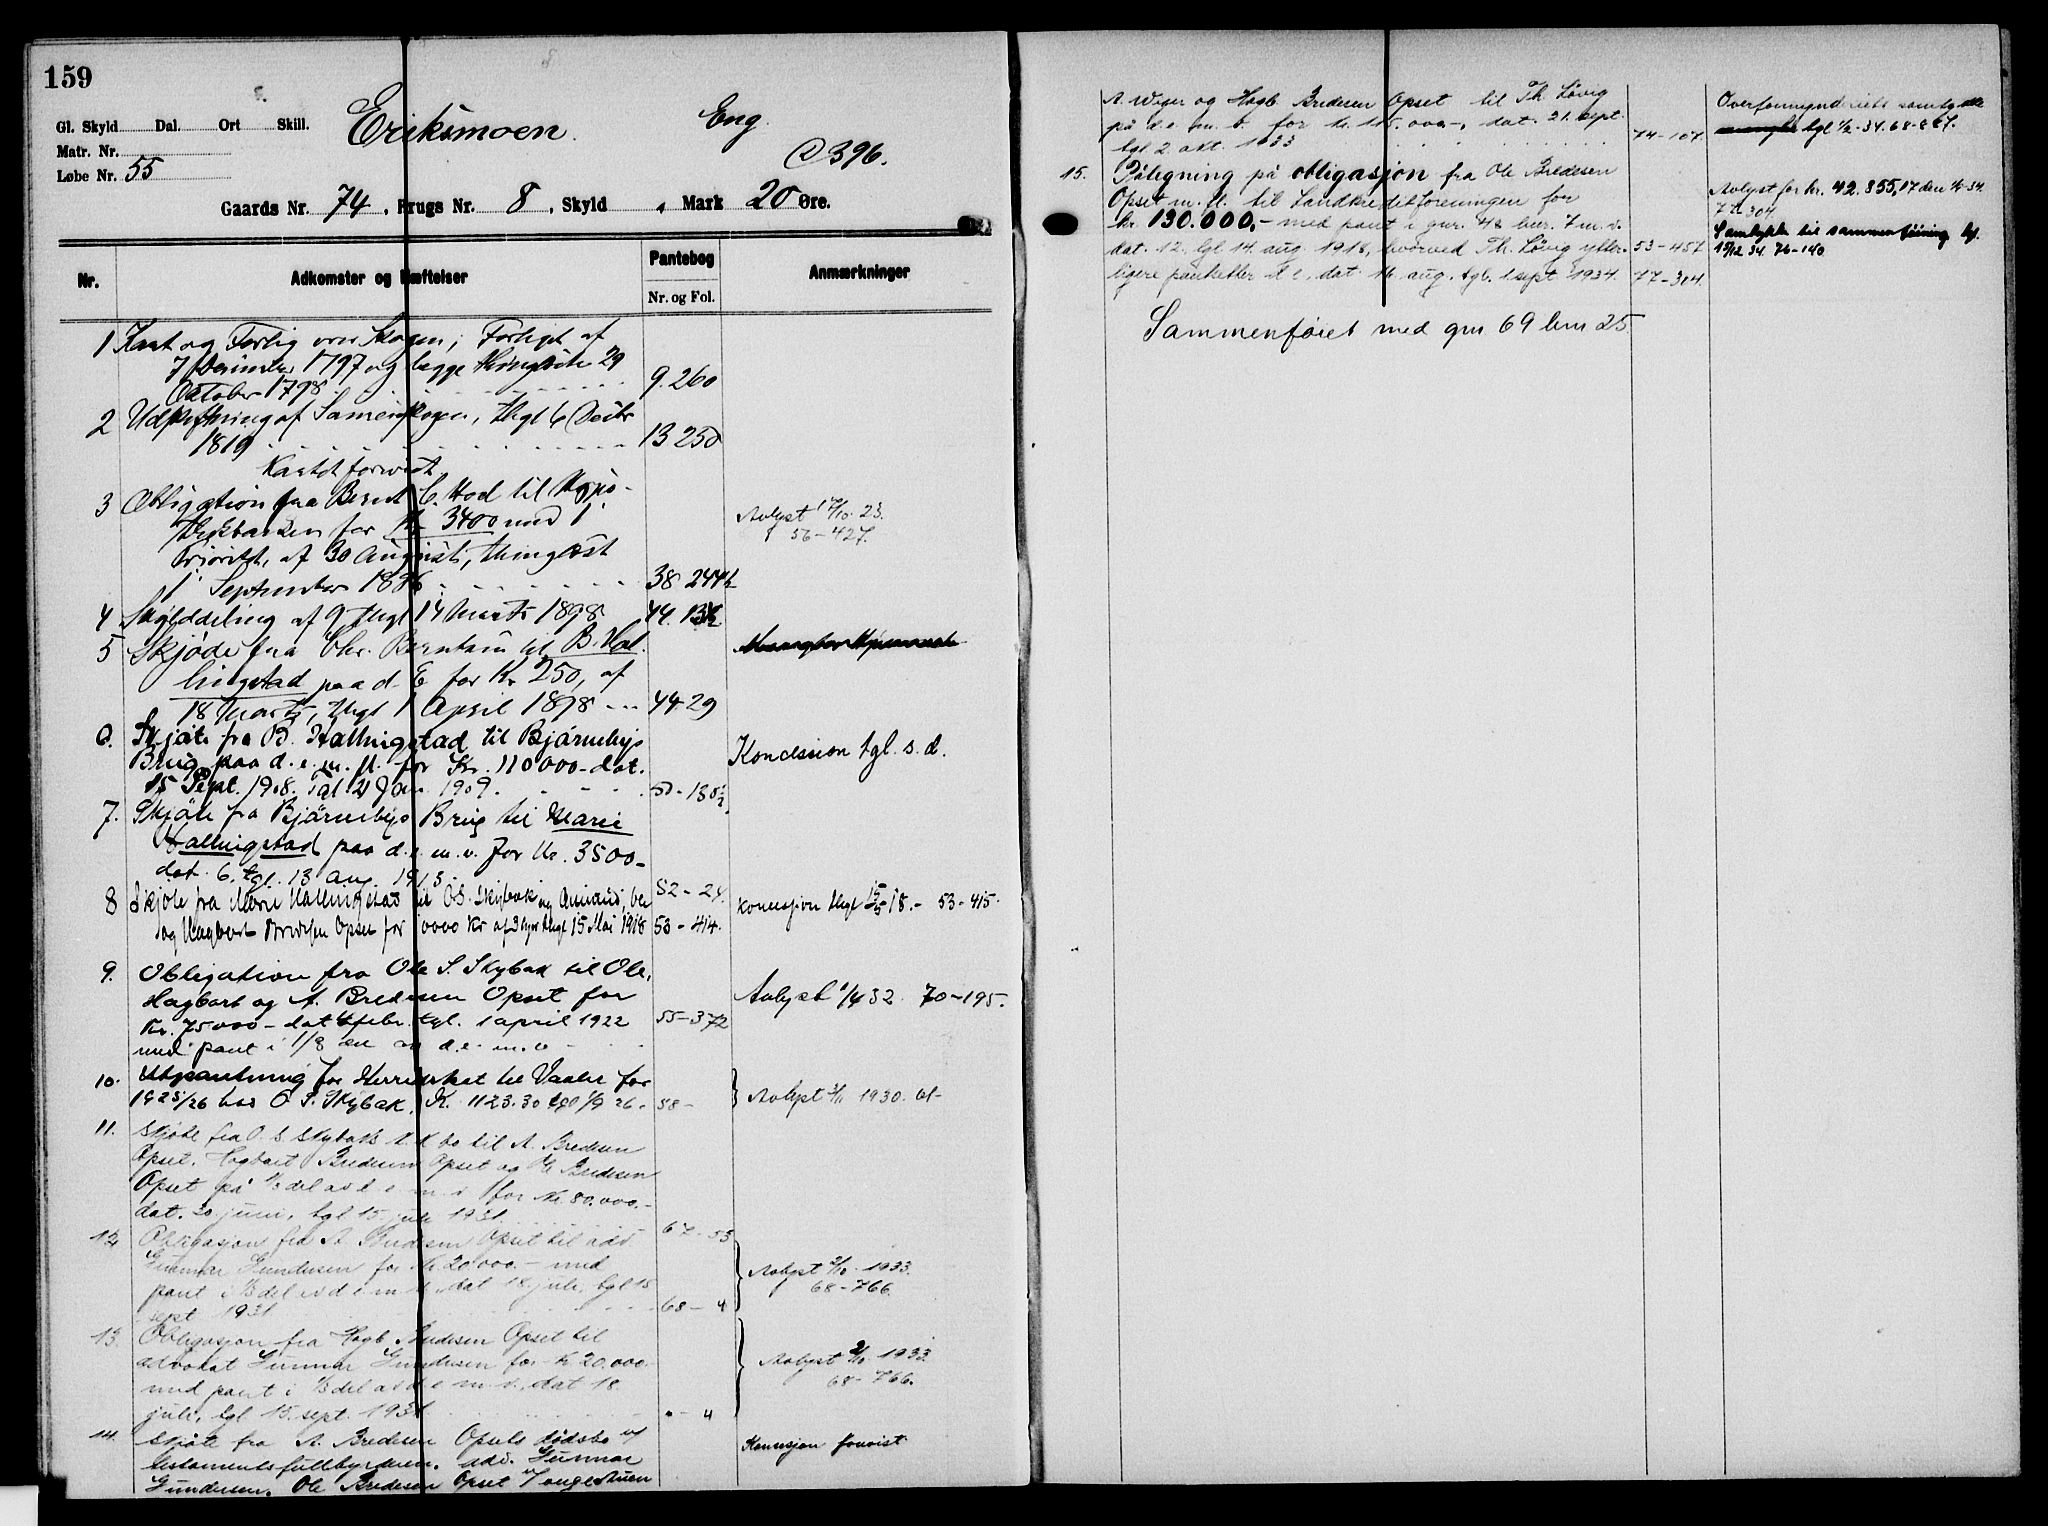 159
Gl. Skyld Dal. Ort Skill.
Matr. Nr.
Løbe Nr. 55
Eriksmoen. Eng.
396.
Gaards Nr. 74, Brugs Nr. 8, Skyld Mark 20 Øre.
Nr. Adkomster og Hæftelser Pantebog Anmærkninger
Nr. og Fol.
1 Kart og Forlig over Skogen; Forliget af
7 1797 og begge thinglæste 29
Oktober 1798 9.260
2 Udskiftning af Sameieskogen, thgl 6 Decbr
1819 13 250
Kartet forevist
3 Obligation fra Bernt C. Hod til Hypo-
thekbanken for Kr 3400 med 1'
Prioritet, af 30 August, thinglæst
1' September 1886 38 244
Avlyst 23.
56-427.
4 Skylddeling af 9 thgl 14 Marts 1898 44.
5 Skjøde fra Chr. Berntsen til B. Hal-
lingstad paa d. E for Kr 250, af
18 Marts, thgl 1 April 1898 44 29
6. Skjøte fra B. Hallingstad til Bjørnebys
Brug paa d. e. m. fl. for Kr. 110000- dat.
15 Sept. 1908. Tgl 21 Jan. 1909. 50-130½
Koncession tgl. s. d.
7. Skjøte fra Bjørnebys Brug til Marie
Hallingstad paa d. e. m. v. for Kr. 3500-
dat. 6. tgl. 13 aug. 1913. 52-24.
8 Skjøte fra Marie Hallingstad til O.S. Skybak og
og Hagbart Bredesen Opset for Kr af thgl 15 Mai 1918 53-414.
Koncesjon thgl 15/5 18.- 53-415.
9. Obligation fra Ole S. Skybak til Ole,
Hagbart og A. Bredesen Opset for
Kr. 75000- dat febr. tgl. 1 april 1922 55-372
med pant i 1/3 del av d. e. m. v
Avlyst 1/4 32. 70-195.
10. Utpantning for Herredskat til Vaaler for
1925/26 hos O. S. Skybak. Kr. 1123.30 tgl 1/9 26. 58-
Avlyst 3/11 1930.
11. Skjøte fra O. S. Skybak's k.k.bo til A. Bredesen
Opset, Hagbart Bredesen Opset og Ole Bredesen
Opset på 1/3 del av d e m. v for Kr. 80.000.-
dat. 30 juni, tgl 15 juli 1931. 67-53
12. Obligasjon fra A. Bredesen Opset til adv.
Gunnar Gundersen for Kr 20.000.- med
pant i 1/3 del av d e m v. dat 18. juli, tgl 15
sept 1931 68-4
Avlyst 2/10. 1933.
68-766.
13. Obligasjon fra Hagb. Bredesen Opset til
advokat Gunnar Gundersen for Kr 20.000.
med pant i 1/3 del av d e m. v. dat 18.
juli, tgl 15. sept. 1931 "-4
Avlyst 2/10. 1933.
68-766.
14. Skjøte fra A. Bredesen Opsets dødsbo v/
testamentsfullbyrderen. adv. Gunnar
Gundersen. Ole Bredesen Opset
Konsesjon forevist
A. Wager og Hagb. Bredesen Opset til Th. Løvig
på d. e. m. v. for kr. 115.000-, dat. 21. sept.
tgl. 2. okt. 1933 74-107.
Overformynderiets samtykke
tgl 1/2-34. 68-867.
15. Pålegning på obligasjon fra Ole Bredesen
Opset m. fl. til Landkreditforeningen for
kr. 130.000,- med pant i gnr. 48 bnr. 7 m. v.
dat. 12. tgl 14. aug. 1918, hvorved Th. Løvig ytter- 53-457
ligere pantsetter d. e., dat. 16. aug. tgl. 1 sept 1934. 77-304.
Avlyst for kr. 42.855,17 den 1/9-34.
77-304
Samtykke til sammenføining tgl.
15/12 34. 76-140
Sammenføiet med gnr 69 bnr 25